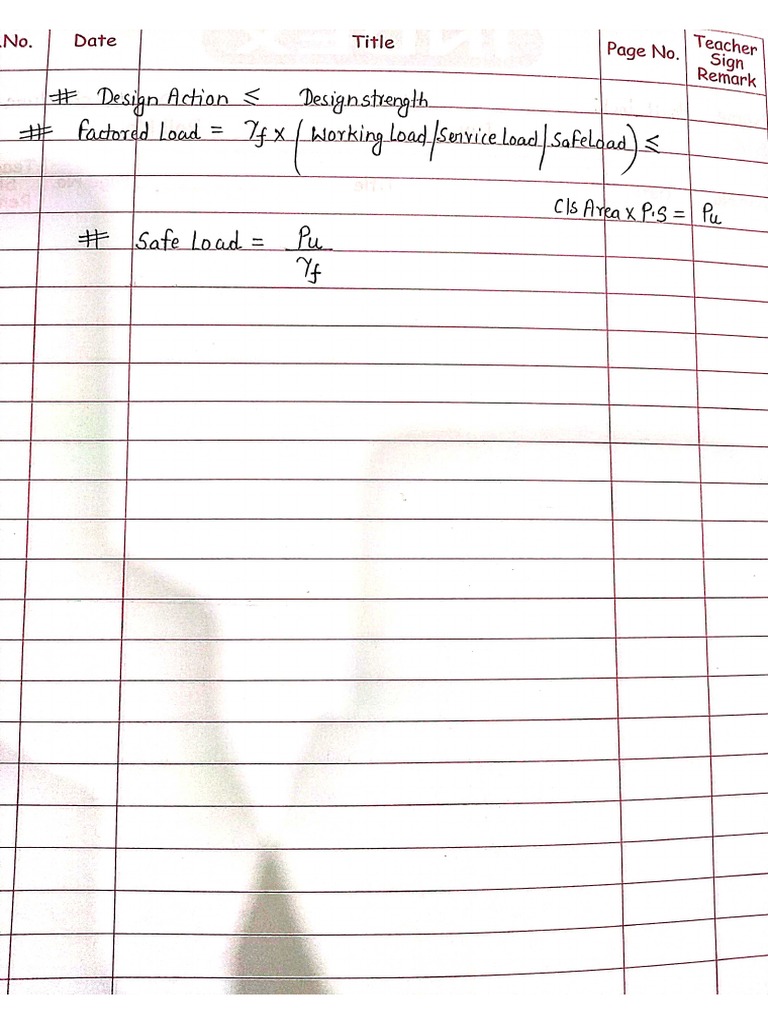 .No. Date Title Page No. Teacher Sign Remark
# Design Action ≤ Design strength
# Factored Load = γf × (Working Load/Service Load/Safe Load) ≤
C/s Area × P.S = Pu
# Safe Load = Pu / γf